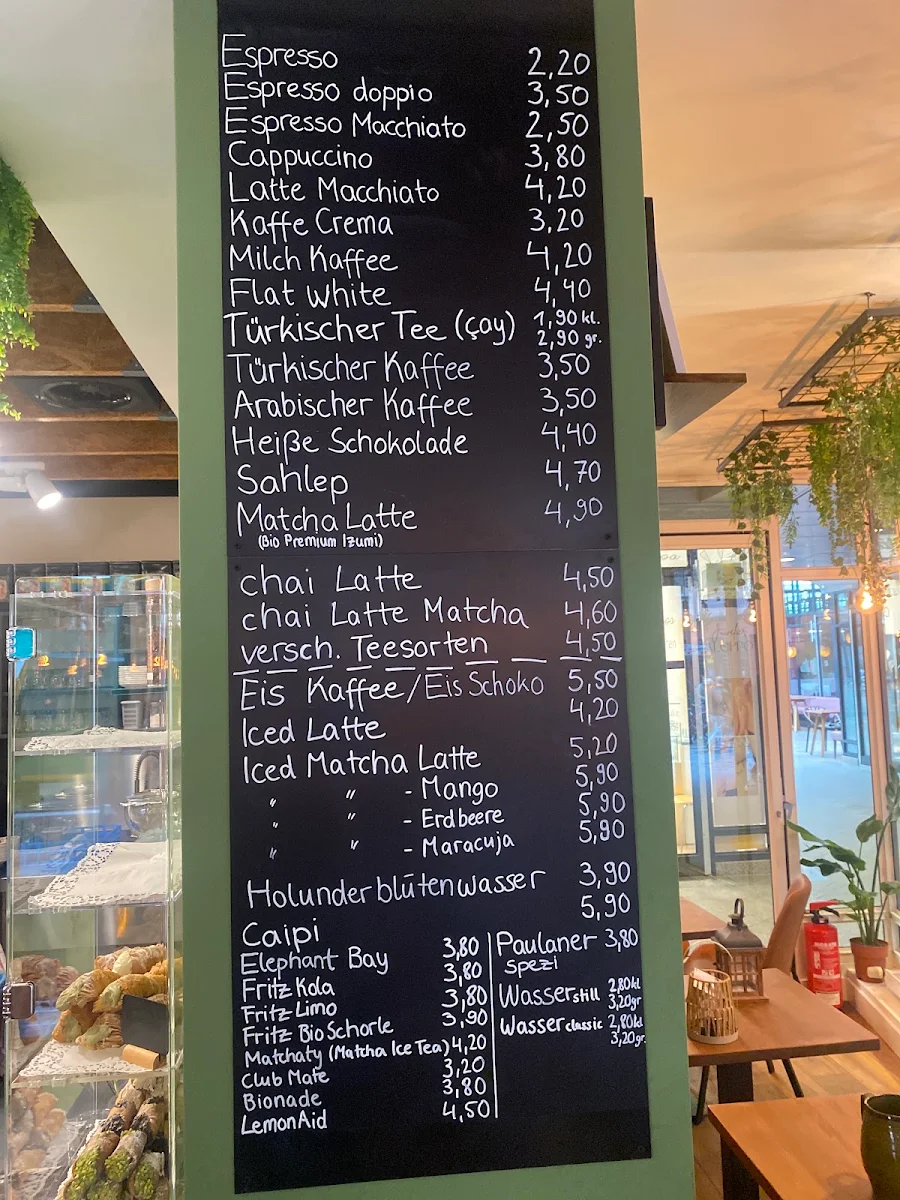 Espresso 2,20
Espresso doppio 3,50
Espresso Macchiato 2,50
Cappuccino 3,80
Latte Macchiato 4,20
Kaffe Crema 3,20
Milch Kaffee 4,20
Flat White 4,40
Türkischer Tee (çay) 1,90 kl.
2,90 gr.
Türkischer Kaffee 3,50
Arabischer Kaffee 3,50
Heiße Schokolade 4,40
Sahlep 4,70
Matcha Latte 4,90
(Bio Premium Izumi)
chai Latte 4,50
chai Latte Matcha 4,60
versch. Teesorten 4,50
Eis Kaffee/Eis Schoko 5,50
Iced Latte 4,20
Iced Matcha Latte 5,20
" " - Mango 5,90
" " - Erdbeere 5,90
" " - Maracuja 5,90
Holunderblütenwasser 3,90
Caipi 5,90
Elephant Bay 3,80
Fritz Kola 3,80
Fritz Limo 3,80
Fritz Bio Schorle 3,90
Matchaty (Matcha Ice Tea) 4,20
Club Mate 3,20
Bionade 3,80
LemonAid 4,50
Paulaner 3,80
Spezi
Wasser still 2,80kl
3,20gr
Wasser classic 2,80kl
3,20gr.